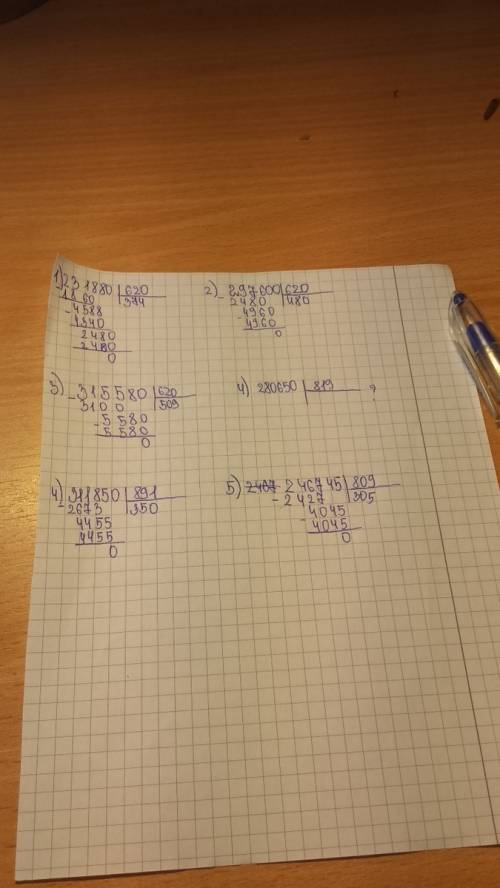 1) 231880 | 620
- 1860 | 374
- 4588
4340
2480
- 2480
0
2) - 297600 | 620
2480 | 480
- 4960
4960
0
3) - 315580 | 620
3100 | 509
- 5580
5580
0
4) 280650 | 819 ?
4) 311850 | 891
- 2673 | 350
4455
4455
0
5) - 246745 | 809
2427 | 305
- 4045
4045
0